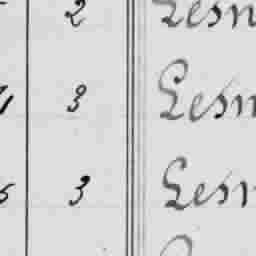 2 Lesn
3 Lesn
3 Lesn